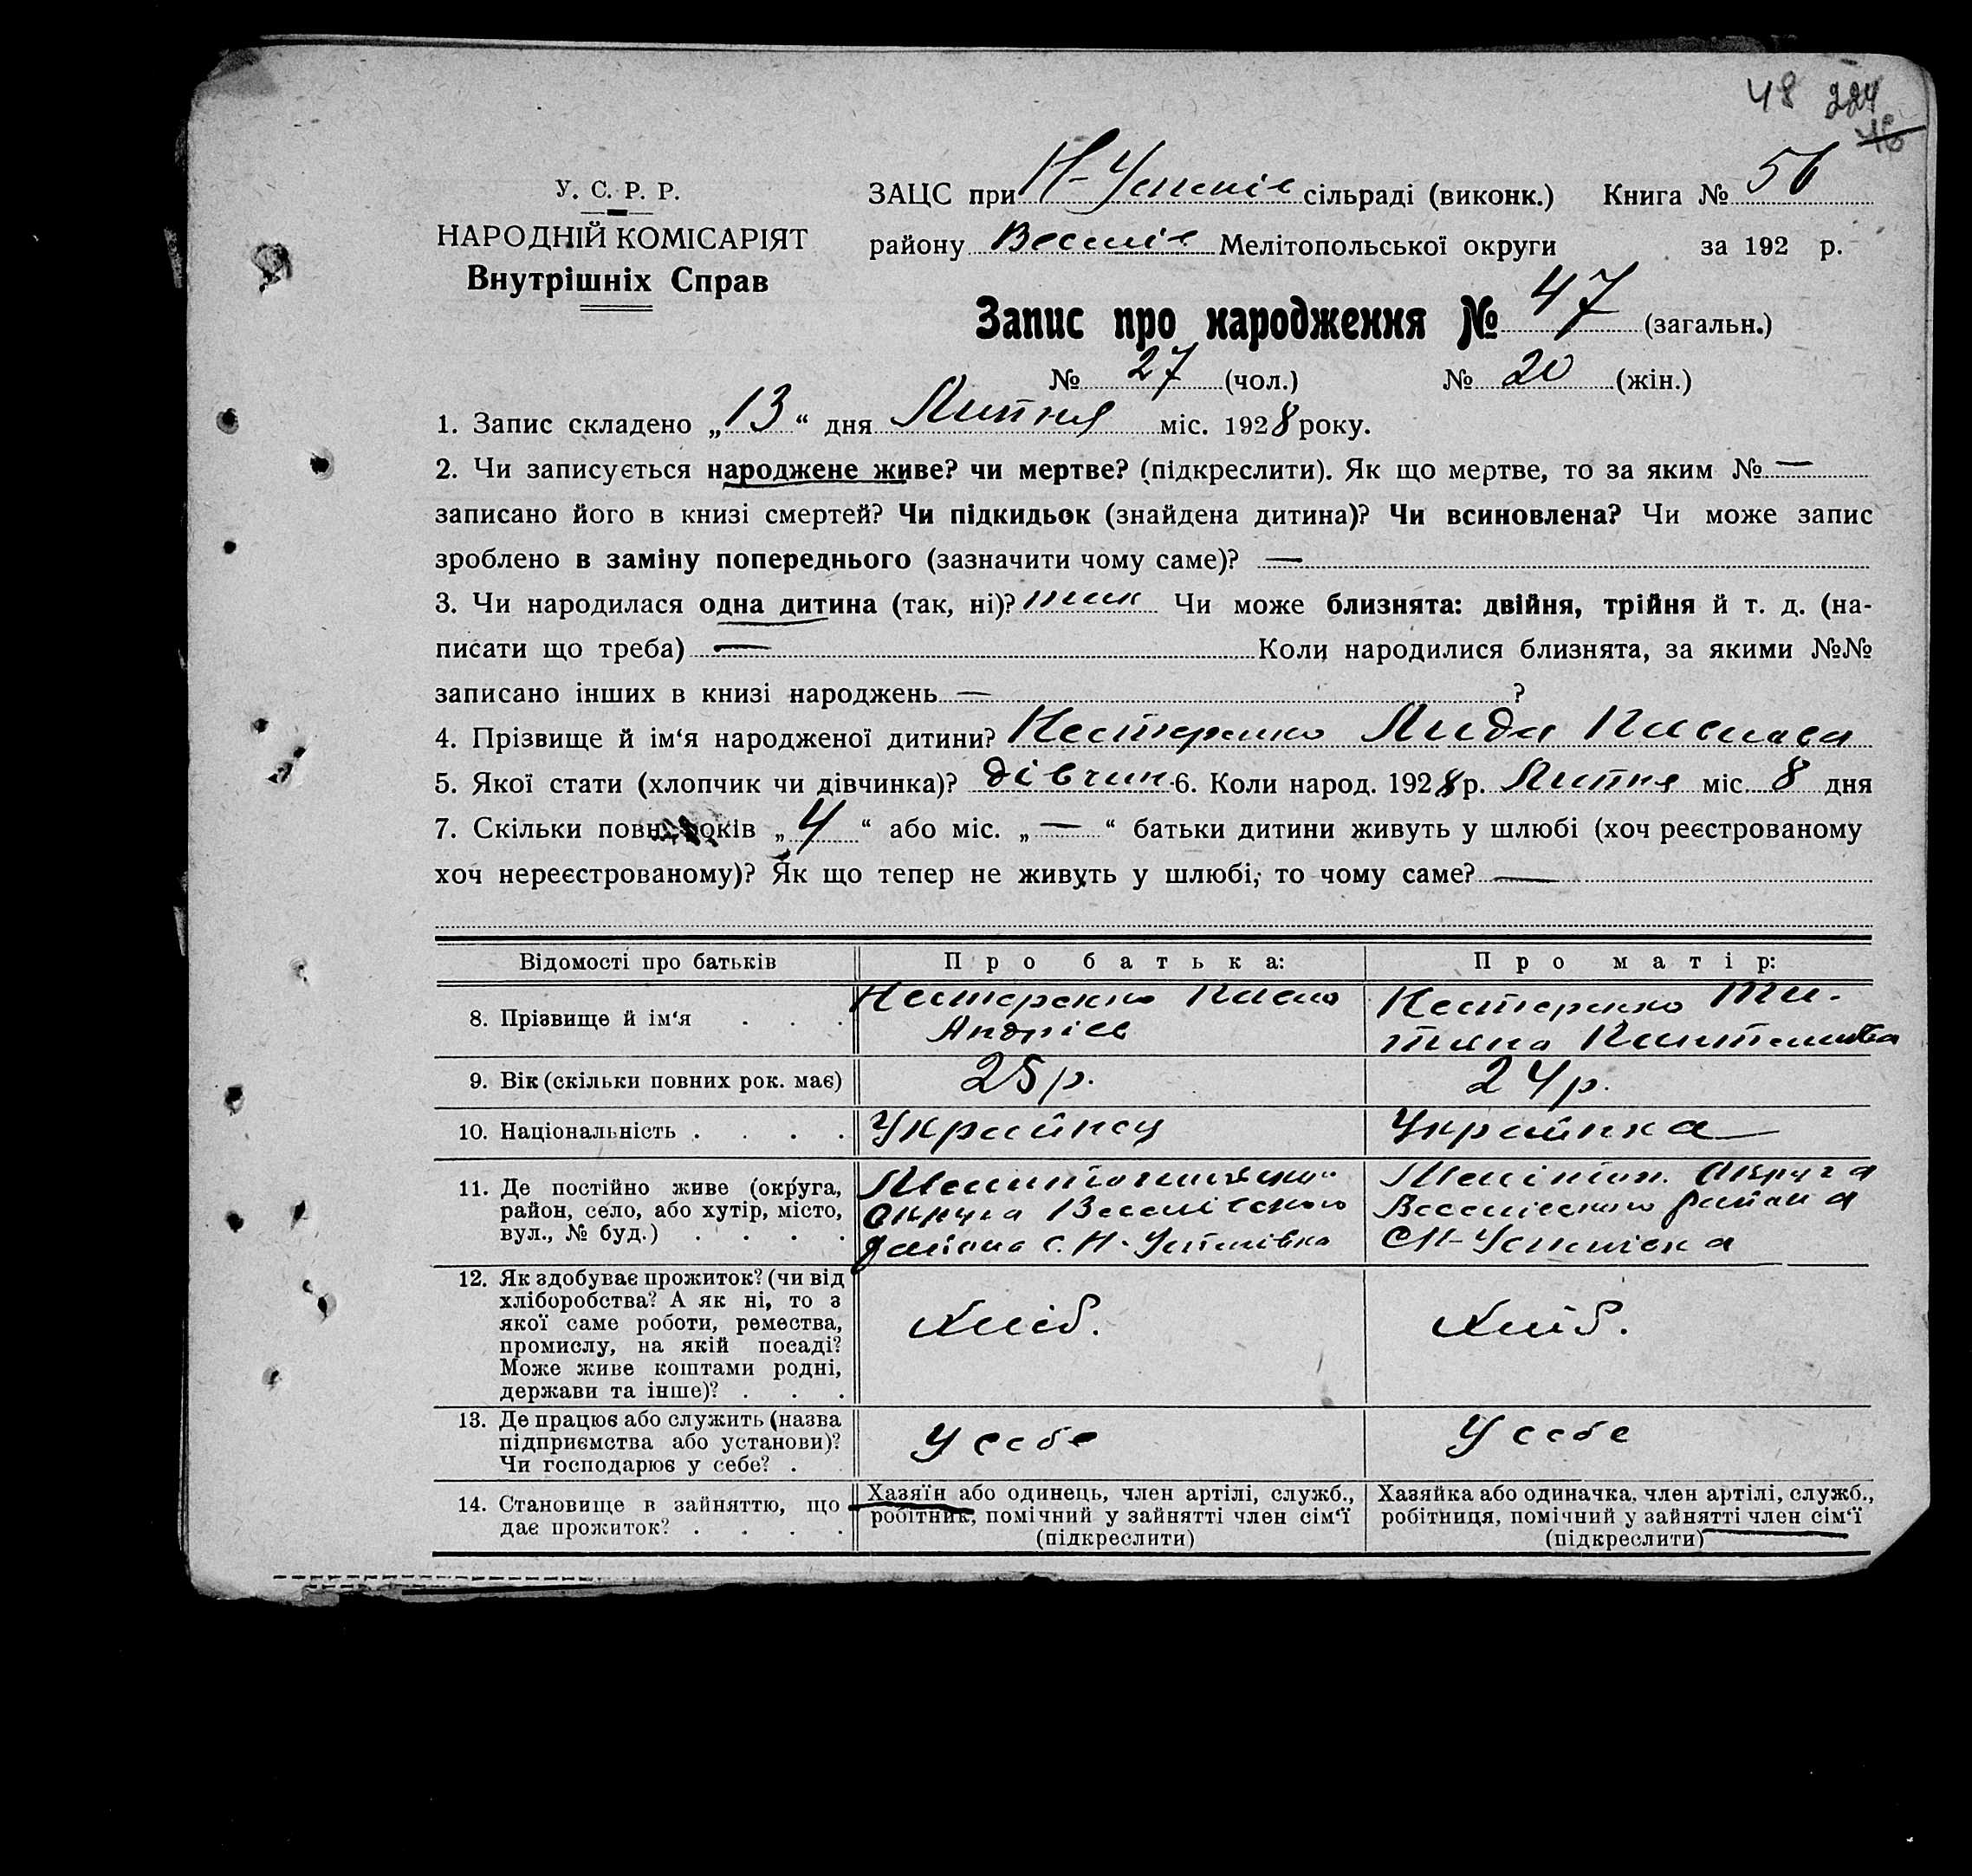 48 224
46
У. С. Р. Р.
НАРОДНІЙ КОМІСАРІЯТ
Внутрішніх Справ
ЗАЦС при Н-Успеніє сільраді (виконк.) Книга № 56
району Веселіє Мелітопольської округи за 192 р.
Запис про народження № 47 (загальн.)
№ 27 (чол.) № 20 (жін.)
1. Запис складено „13“ дня Липня міс. 1928 року.
2. Чи записується народжене живе? чи мертве? (підкреслити). Як що мертве, то за яким № —
записано його в книзі смертей? Чи підкидьок (знайдена дитина)? Чи всиновлена? Чи може запис
зроблено в заміну попереднього (зазначити чому саме)? —
3. Чи народилася одна дитина (так, ні)? так Чи може близнята: двійня, трійня й т. д. (на-
писати що треба) — Коли народилися близнята, за якими №№
записано інших в книзі народжень — ?
4. Прізвище й ім‘я народженої дитини? Нестеренко Лида
5. Якої стати (хлопчик чи дівчинка)? дівчин 6. Коли народ. 1928 р. Липня міс. 8 дня
7. Скільки повних років „4“ або міс. „—“ батьки дитини живуть у шлюбі (хоч реєстрованому
хоч нереєстрованому)? Як що тепер не живуть у шлюбі, то чому саме? —
Відомості про батьків Про батька: Про матір:
8. Прізвище й ім‘я . . . Нестеренко Павло Нестеренко Та-
Андріев тяна
9. Вік (скільки повних рок. має) 25 р. 24 р.
10. Національність . . . . Українец Українка
11. Де постійно живе (округа, Меліто́п. Округа
район, село, або хутір, місто, Округа Веселівского Веселівского района
вул., № буд.) . . . . района с. Н-Успенівка С Н-Успенівка
12. Як здобуває прожиток? (чи від
хліборобства? А як ні, то з
якої саме роботи, ремества, Хліб. Хліб.
промислу, на якій посаді?
Може живе коштами родні,
держави та інше)? . . .
13. Де працює або служить (назва
підприємства або установи)? У себе У себе
Чи господарює у себе? .
14. Становище в зайняттю, що Хазяїн або одинець, член артілі, служб., Хазяйка або одиначка, член артілі, служб.,
дає прожиток? . . . . робітник, помічний у зайнятті член сім‘ї робітниця, помічний у зайнятті член сім‘ї
(підкреслити) (підкреслити)